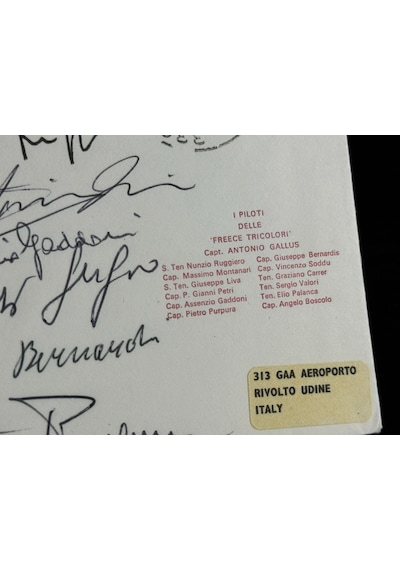 Gaddoni
Bernardis
I PILOTI
DELLE
'FREECE TRICOLORI'
Capt. ANTONIO GALLUS
S. Ten Nunzio Ruggiero
Cap. Massimo Montanari
S. Ten. Giuseppe Liva
Cap. P. Gianni Petri
Cap. Assenzio Gaddoni
Cap. Pietro Purpura
Cap. Giuseppe Bernardis
Cap. Vincenzo Soddu
Ten. Graziano Carrer
Ten. Sergio Valori
Ten. Elio Palanca
Cap. Angelo Boscolo
313 GAA AEROPORTO
RIVOLTO UDINE
ITALY